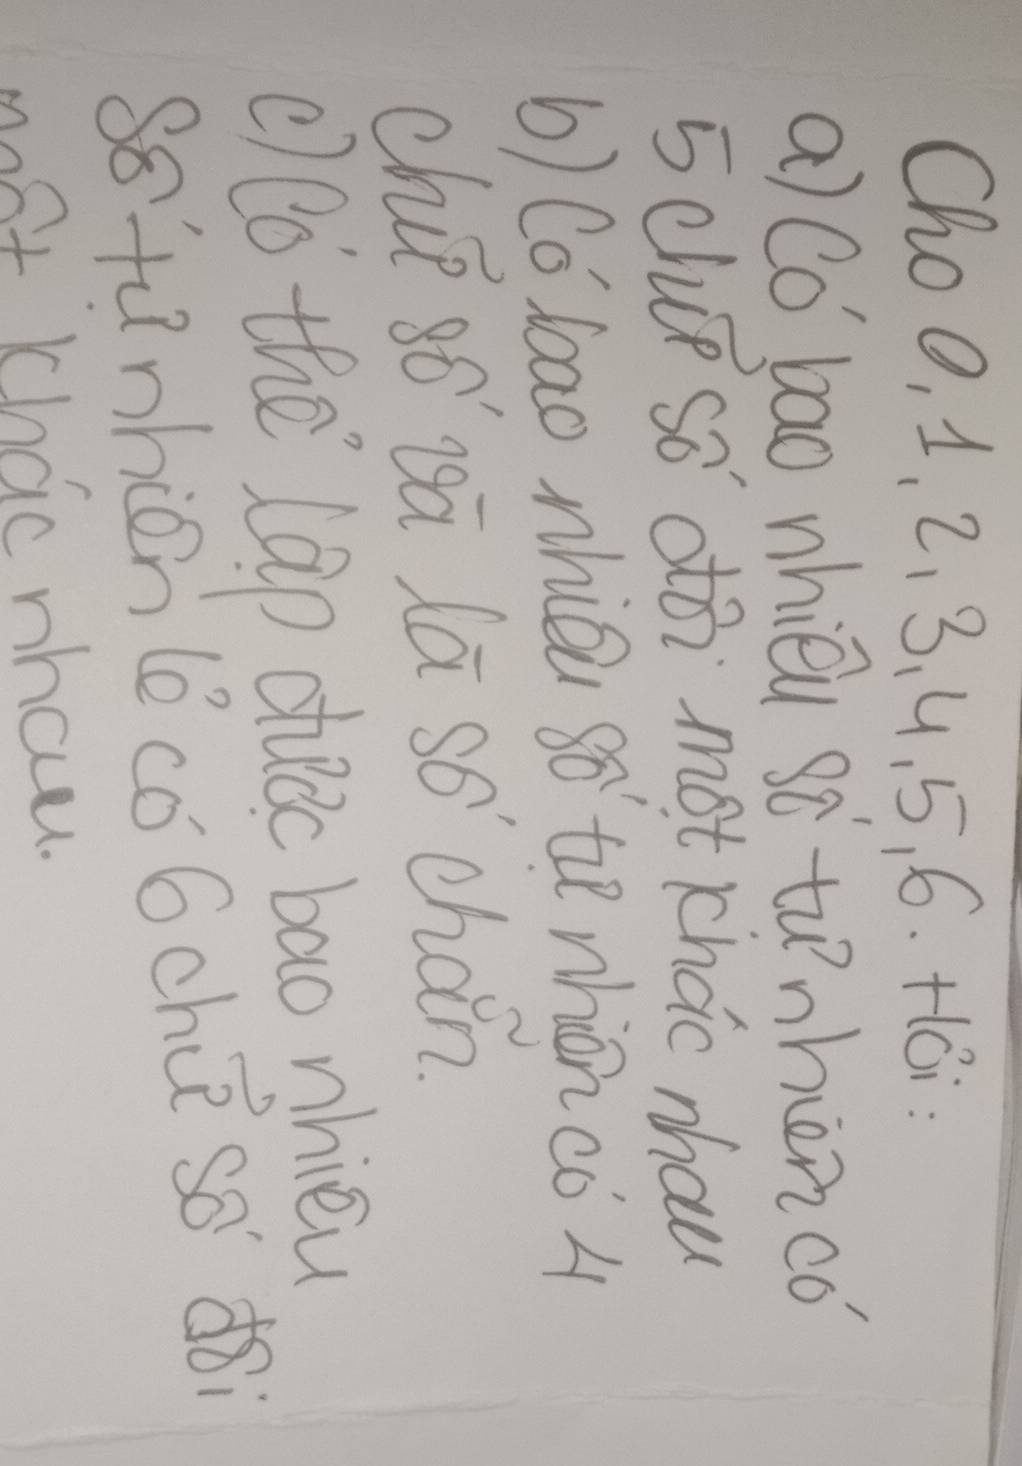 Cho 0, 1, 2, 3, 4, 5, 6. Hỏi:
a) Có bao nhiêu số tự nhiên có
5 chữ số đôi một khác nhau
b) Có bao nhiêu số tự nhiên có 4
chữ số và là số chẵn.
c) Có thể lập được bao nhiêu
số tự nhiên lẻ có 6 chữ số đôi
một khác nhau.